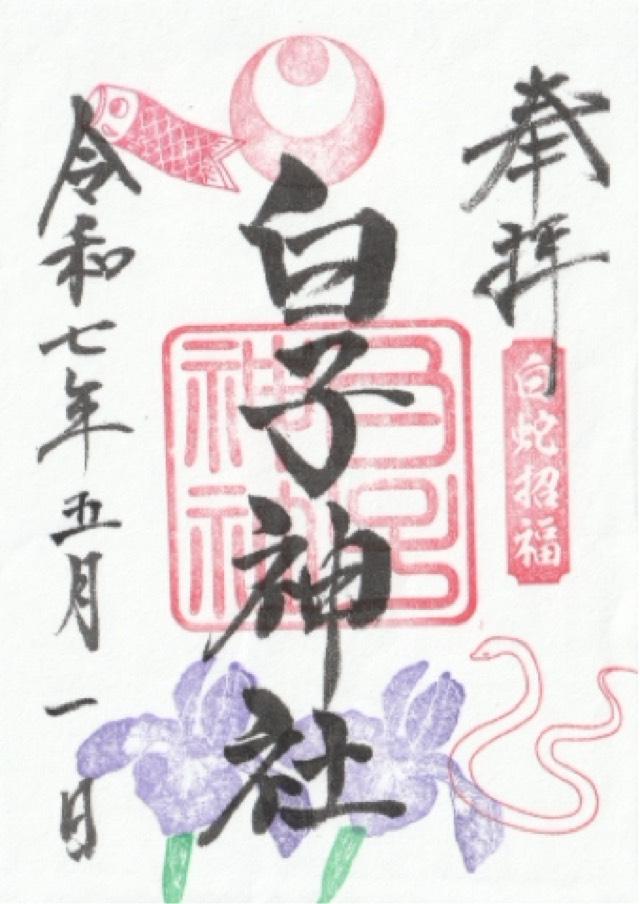 奉拝
白蛇招福
白子神社
白子神社
令和七年五月一日